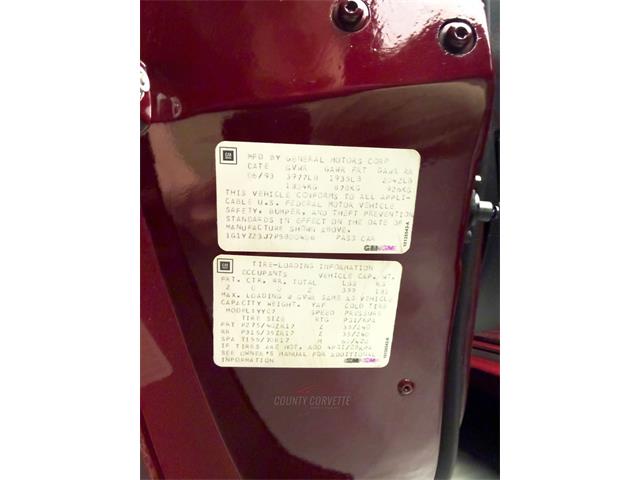 GM
MFD BY GENERAL MOTORS CORP
DATE GVWR GAWR FRT GAWR RR
06/93 3977LB 1935LB 2042LB
1804KG 878KG 926KG
THIS VEHICLE CONFORMS TO ALL APPLI-
CABLE U.S. FEDERAL MOTOR VEHICLE
SAFETY, BUMPER, AND THEFT PREVENTION
STANDARDS IN EFFECT ON THE DATE OF
MANUFACTURE SHOWN ABOVE.
PASS CAR
GM
TIRE-LOADING INFORMATION
OCCUPANTS VEHICLE CAP. WT.
FRT. CTR. RR. TOTAL LBS KG
2 0 0 2 399 181
MAX. LOADING @ GVWR SAME AS VEHICLE
CAPACITY WEIGHT. COLD TIRE
MODEL:1YY07
TIRE SIZE RTG PSI/KPA
FRT P275/40ZR17 Z 35/240
RR P315/35ZR17 Z 35/240
SPA M 60/420
IF TIRES ARE HOT, ADD 4PSI/28KPA
SEE OWNER'S MANUAL FOR ADDITIONAL
INFORMATION
COUNTY CORVETTE